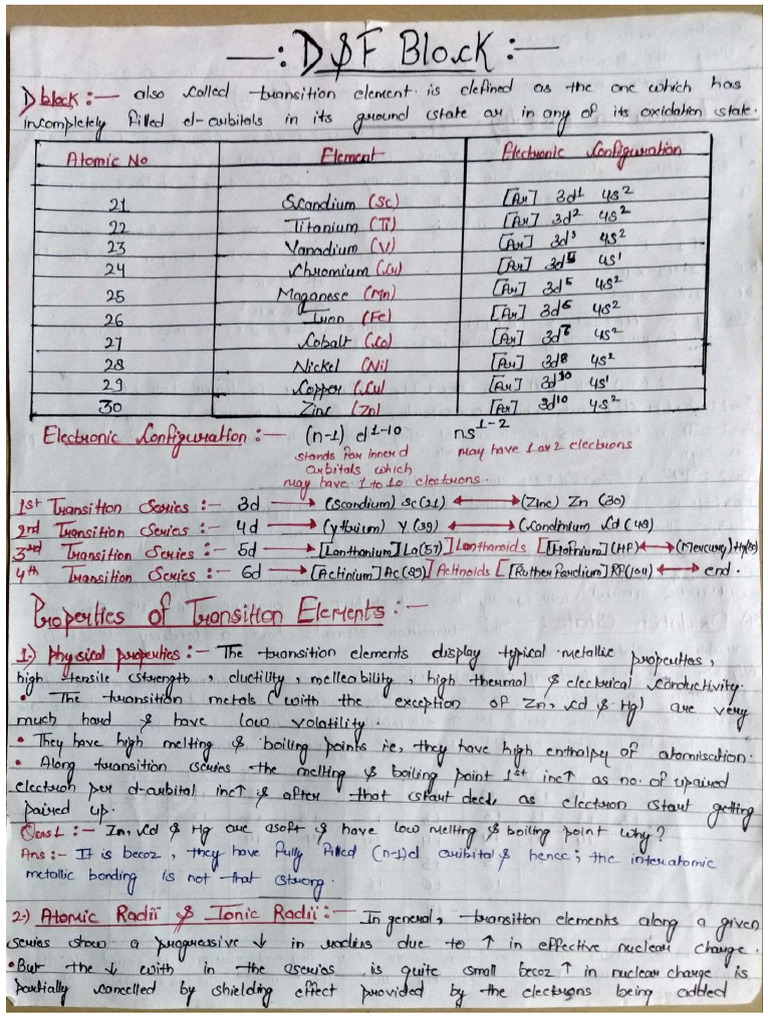 —: D & F Block :—
D block :— also called transition element is defined as the one which has
incompletely filled d-orbitals in its ground state or in any of its oxidation state.
Atomic No Element Electronic Configuration
21 Scandium (Sc) [Ar] 3d¹ 4s²
22 Titanium (Ti) [Ar] 3d² 4s²
23 Vanadium (V) [Ar] 3d³ 4s²
24 Chromium (Cr) [Ar] 3d⁵ 4s¹
25 Maganese (Mn) [Ar] 3d⁵ 4s²
26 Iron (Fe) [Ar] 3d⁶ 4s²
27 Cobalt (Co) [Ar] 3d⁷ 4s²
28 Nickel (Ni) [Ar] 3d⁸ 4s²
29 Copper (Cu) [Ar] 3d¹⁰ 4s¹
30 Zinc (Zn) [Ar] 3d¹⁰ 4s²
Electronic Configuration :— (n-1) d¹⁻¹⁰ ns¹⁻²
stands for inner d may have 1 or 2 electrons
orbitals which
may have 1 to 10 electrons.
1st Transition Series :- 3d → (Scandium) Sc(21) ↔ (Zinc) Zn (30)
2nd Transition Series :- 4d → (yttrium) Y (39) ↔ Cd (48)
3rd Transition Series :- 5d → [Lanthanium] La(57)] Lanthanoids [[Hafnium] (HF) ↔ (Mercury) Hg(80)
4th Transition Series :- 6d → [Actinium] Ac(89)] Actinoids [[Rutherfordium] RF(104) ↔ end.
Properties of Transition Elements :—
1.) Physical properties :— The transition elements display typical metallic properties,
high tensile strength, ductility, melleability, high thermal & electrical conductivity.
• The transition metals (with the exception of Zn, Cd & Hg) are very
much hard & have low volatility.
• They have high melting & boiling points ie, they have high enthalpy of atomisation.
• Along transition series the melting & boiling point 1st inc↑ as no. of upaired
electron per d-orbital inc↑ & after that start dec↓, as electron start getting
paired up.
Qns1 :— Zn, Cd & Hg are soft & have low melting & boiling point why?
Ans :- It is becoz, they have fully filled (n-1)d oribital & hence; the interatomic
metallic bonding is not that strong.
2.) Atomic Radii & Ionic Radii :— In general, transition elements along a given
series show a progressive ↓ in radius due to ↑ in effective nuclear charge.
• But the ↓ with in the series is quite small becoz ↑ in nuclear charge is
partially cancelled by shielding effect provided by the electrons being added